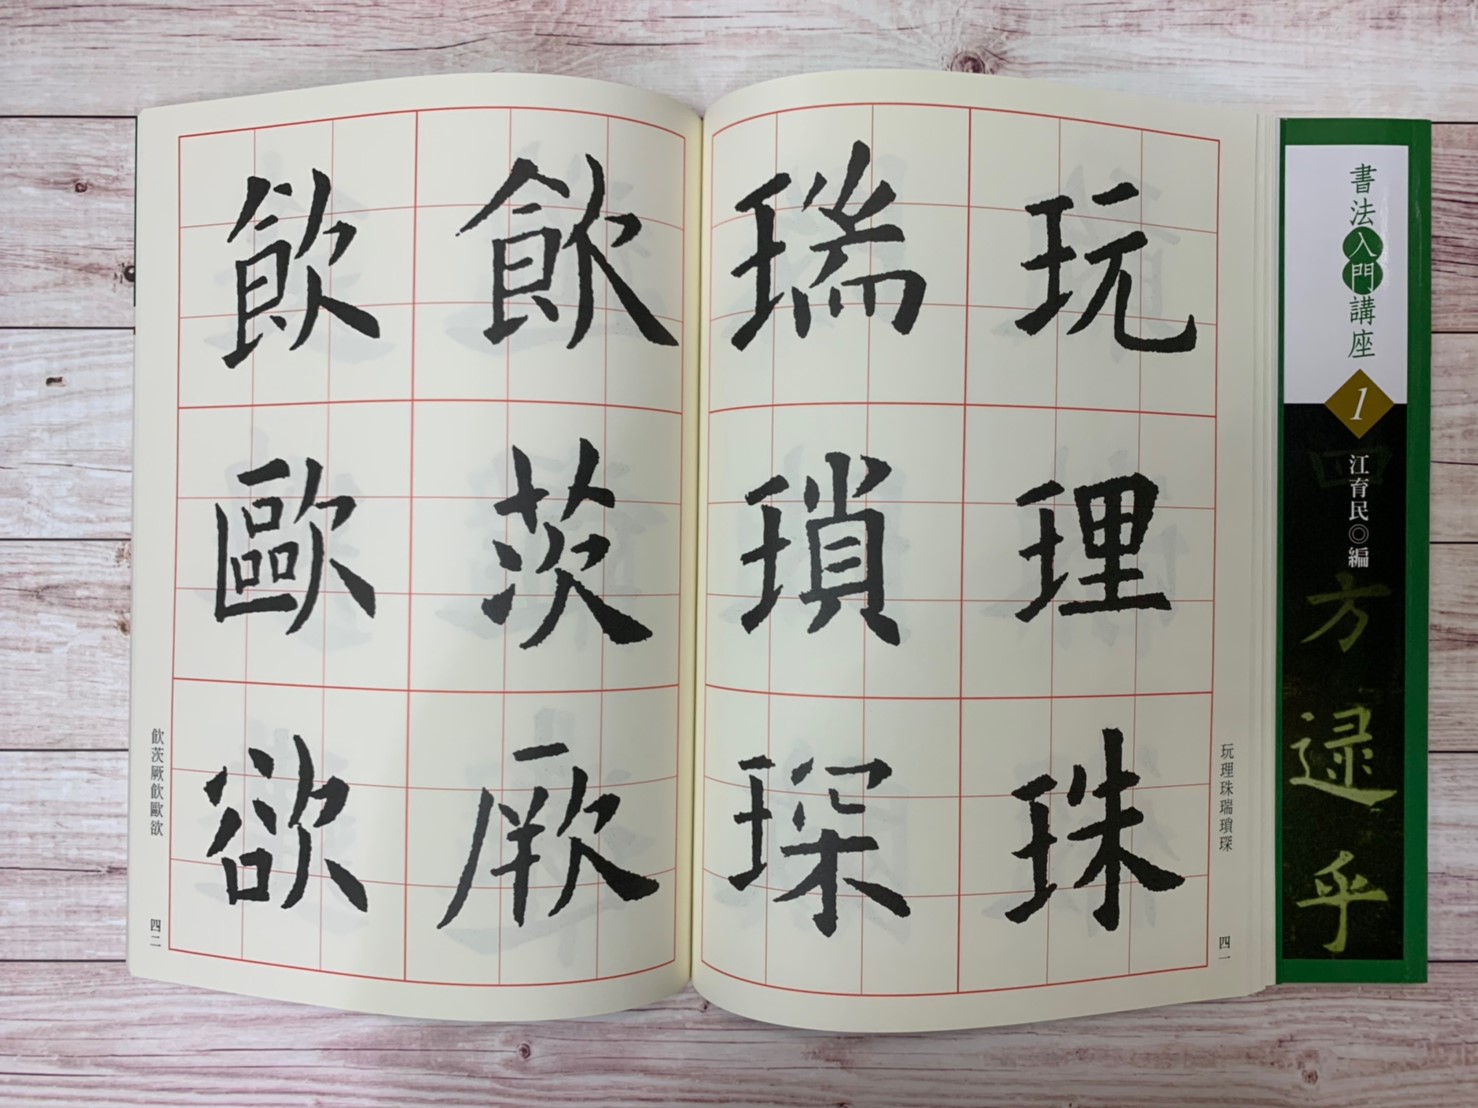 書法入門講座
1
江育民◎編
四方
乎
玩理珠
瑞瑣琛
玩理珠瑞瑣琛
四一
飲茨厥
飲歐欲
飲茨厥飲歐欲
四二